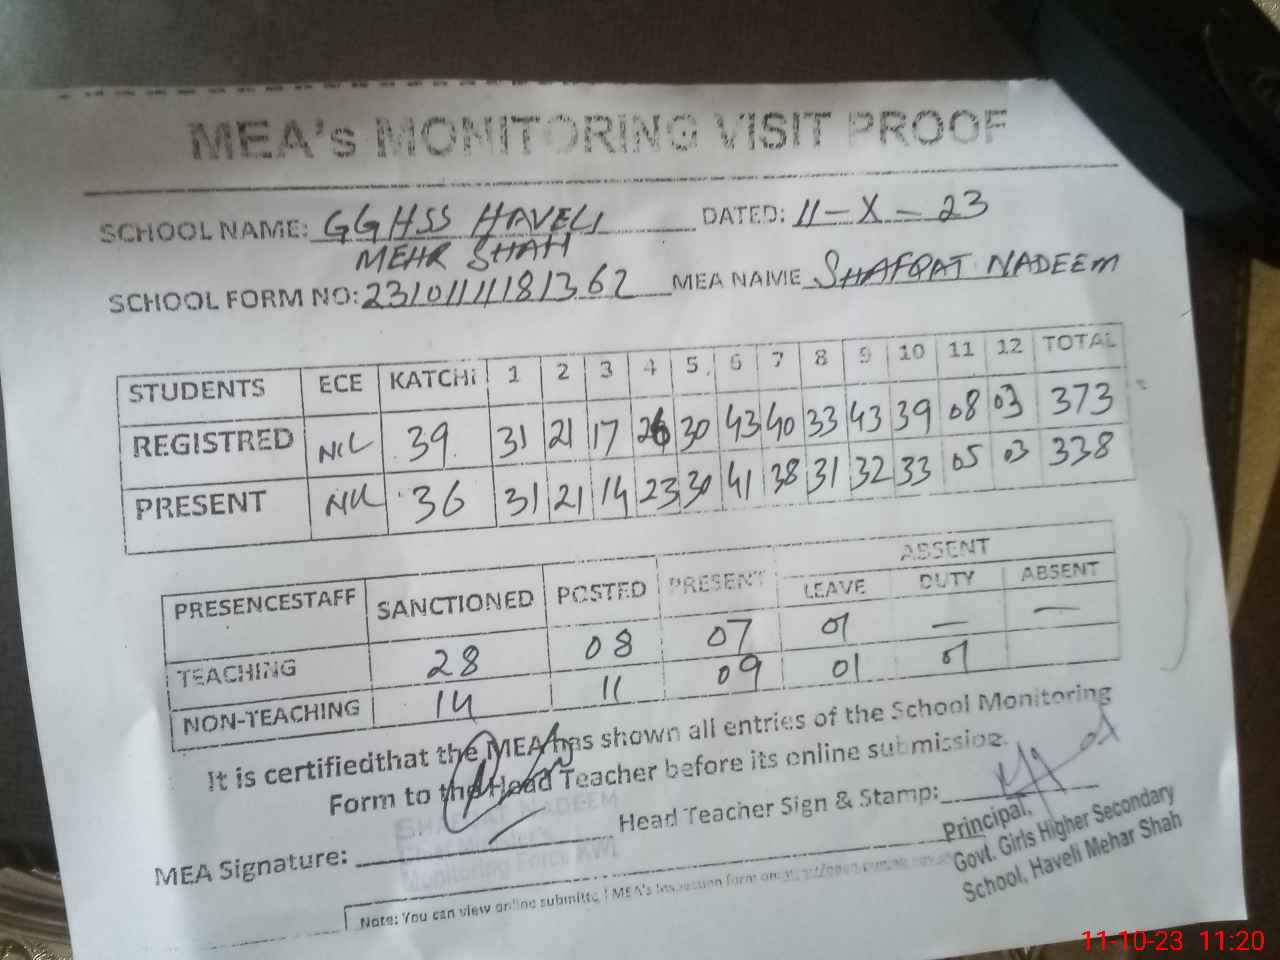 MEA's MONITORING VISIT PROOF
SCHOOL NAME: GGHSS HAVELI DATED: 11-X-23
MEHR SHAH
SCHOOL FORM NO: MEA NAME SHAFQAT NADEEM
STUDENTS ECE KATCHi 1 2 3 4 5 6 7 8 9 10 11 12 TOTAL
REGISTRED NIL 39 31 21 17 26 30 43 40 33 43 39 08 03 373
PRESENT NIL 36 31 21 14 23 30 41 38 31 32 33 05 03 338
ABSENT
PRESENCESTAFF SANCTIONED POSTED PRESENT LEAVE DUTY ABSENT
TEACHING 28 08 07 01 — —
NON-TEACHING 14 11 09 01 01
It is certifiedthat the MEA has shown all entries of the School Monitoring
Form to the Head Teacher before its online submission.
Head Teacher Sign & Stamp:
MEA Signature:
SHAFQAT NADEEM
Chief Minister's
Monitoring Force KWL
Principal,
Govt. Girls Higher Secondary
School, Haveli Mehar Shah
Note: You can view online submitted MEA's Inspection form on
11-10-23 11:20